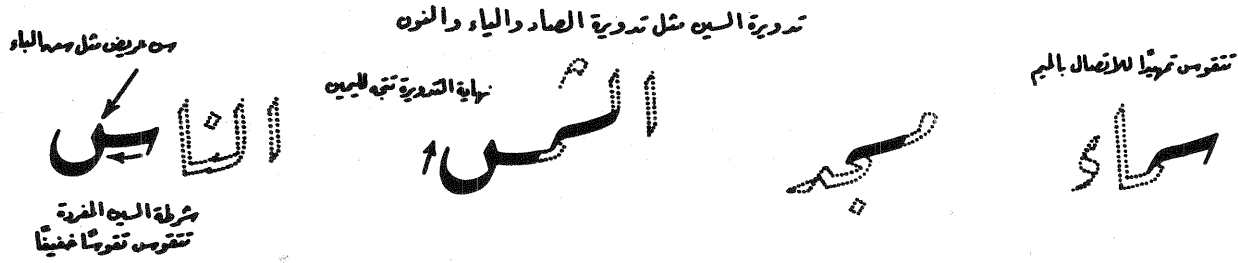 تدويرة السين مثل تدويرة الصاد والياء والنون
تتقوس تمهيدًا للاتصال بالميم
نهاية التدويرة تتجه لليمين
سن عريض مثل سن الباء
سماء
مسجد
الشمس
الناس
شرطة السين المفردة
تتقوس تقوسًا خفيفًا